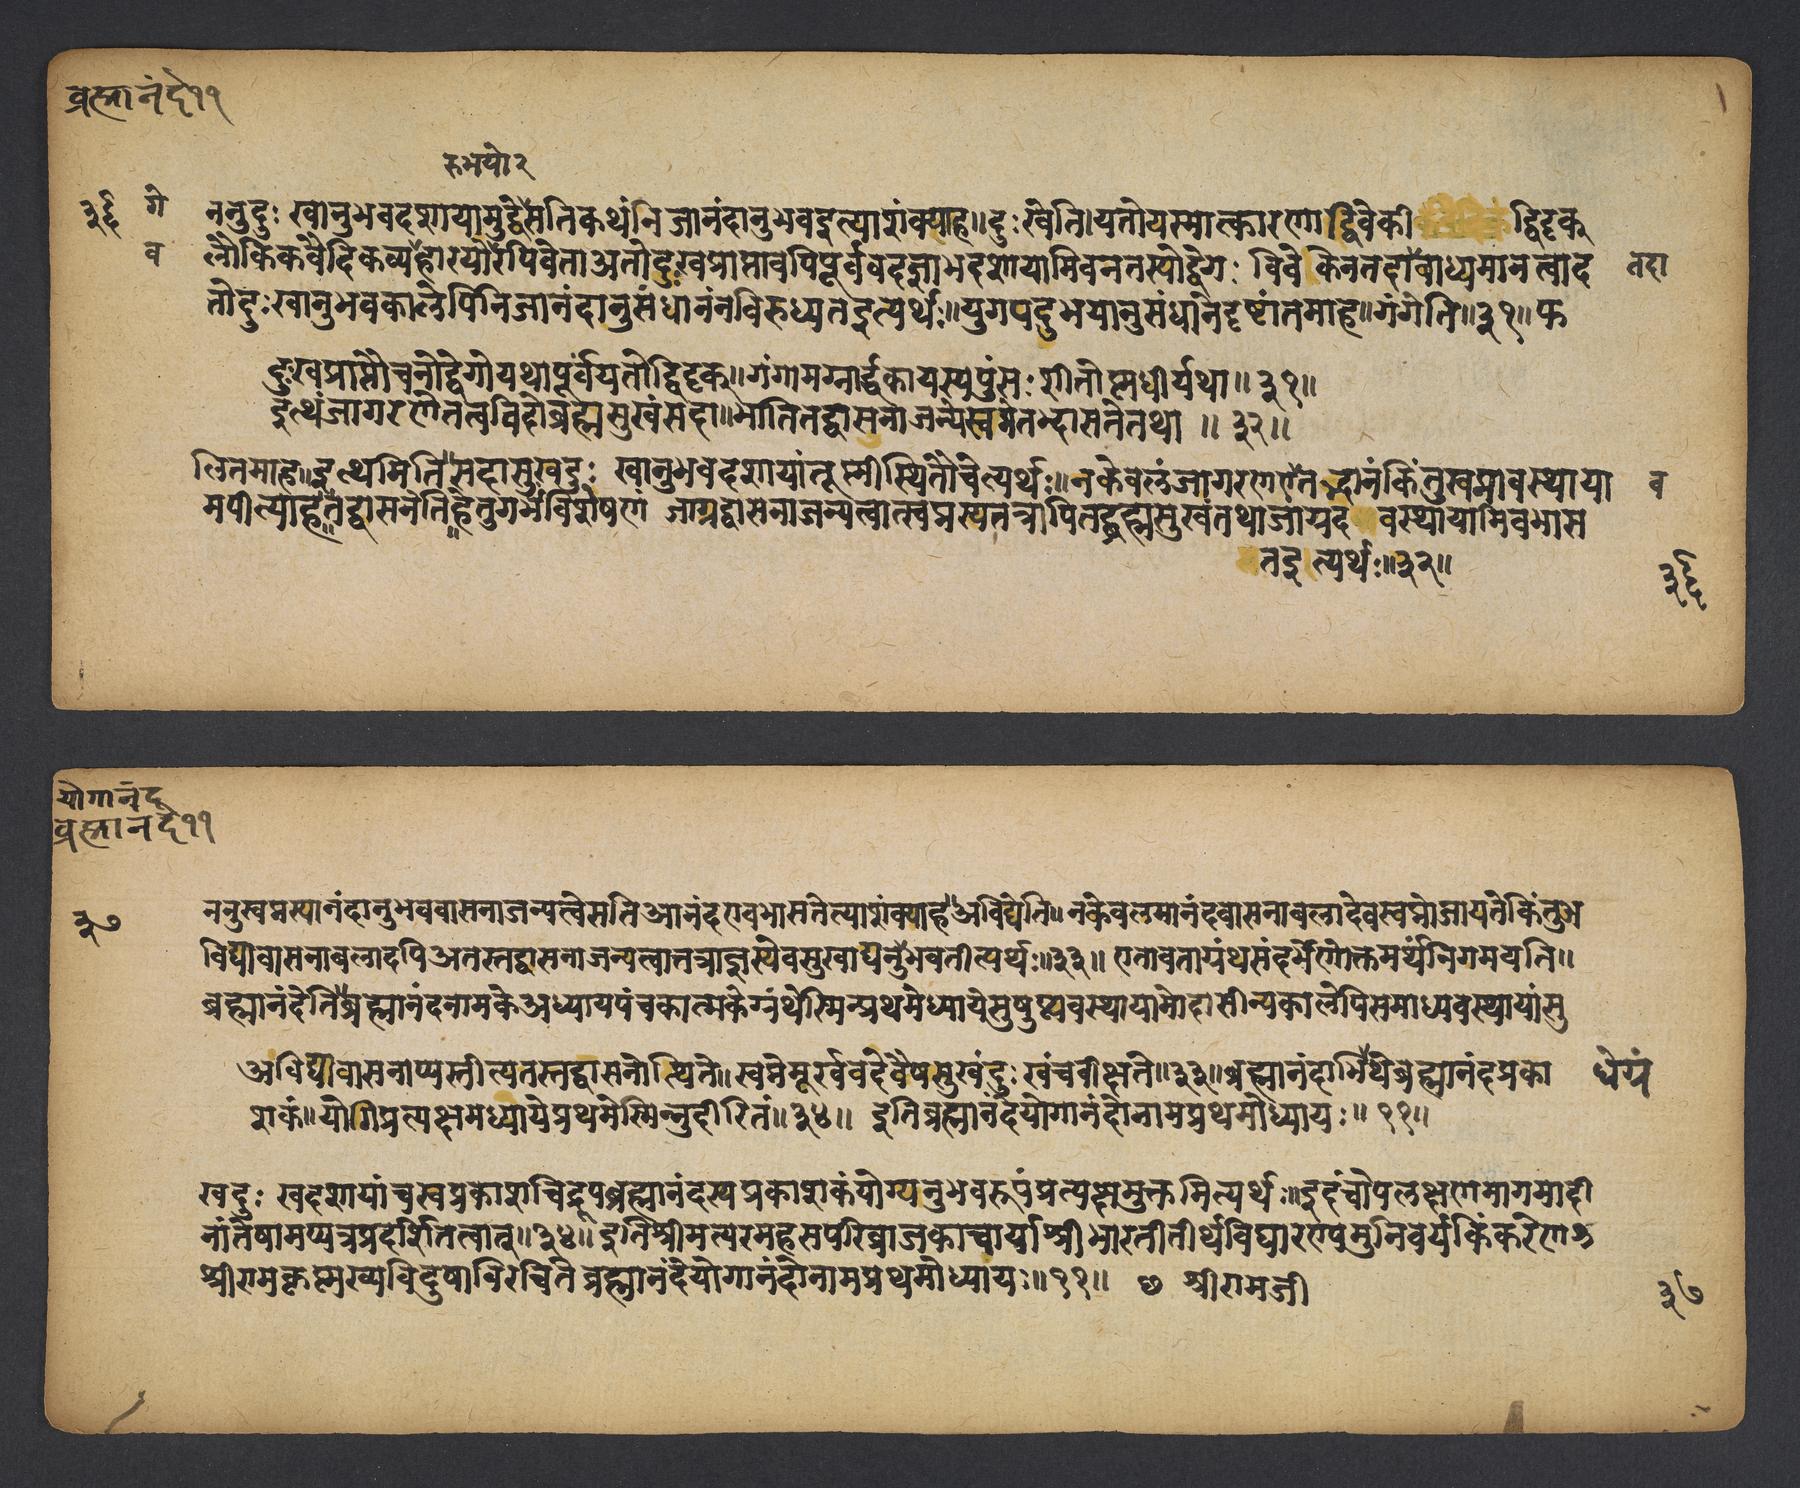 ब्रह्मानंदे ११
रुभयो २
३६ गे ननुदुः खानुभवदशायामुद्वेसतिकथंनिजानंदानुभवइत्याशंक्याह॥दुःखेति।यतोयस्मात्कारणाद्विवेकी द्विदृक्
व लौकिकवैदिकव्यहारयोरपिवेताअतोदुःखप्राप्तावपिपूर्ववदज्ञाभदशायामिवनतस्योद्वेगः विवेकिनतहाबाध्यमानत्वाद तदा
तोदुःखानुभवकालेपिनिजानंदानुसंधानंनविरुध्यतइत्यर्थः॥युगपदुभयानुसंधानेदृष्टांतमाह॥गंगेति॥३१॥फ
दुःखप्राप्तौचनोद्वेगोयथापूर्वयतोद्विदृक्॥गंगामग्नार्द्धकायस्यपुंसः शीतोष्णधीर्यथा॥३१॥
इत्थंजागरणेतत्वविदोब्रह्मसुखंसदा॥भातितद्वासनाजन्येस्वप्नेतन्द्रासतेतथा ॥ ३२॥
लितमाह॥इत्थमिति॥सदासुखदुः खानुभवदशायांतूष्णीस्थितौचेत्यर्थः॥नकेवलंजागरणेएतद्भानंकिंतुस्वप्नावस्थाया व
मपीत्याह॥तद्वासनेति॥हेतुगर्भंविशेषणं जाग्रद्वासनाजन्यत्वात्स्वप्नस्यतत्रापितद्ब्रह्मसुखंतथाजाग्रद वस्थायामिवभास
तइ त्यर्थः॥३२॥
३६
योगानंद
ब्रह्मानंदे ११
३७ ननुस्वप्नस्यानंदानुभववासनाजन्यत्वेसतिआनंदएवभासतेत्याशंक्याह॥अविद्येति॥नकेवलमानंदवासनाबलादेवस्वप्नोजायतेकिंतुअ
विद्यावासनाबलादपिअतस्तद्वासनाजन्यत्वात्तत्राज्ञस्येवसुखाद्यनुभवतीत्यर्थः॥३३॥ एतावताग्रंथसंदर्भेणोक्तमर्थंनिगमयति॥
ब्रह्मानंदेति॥ब्रह्मानंदनामकेअध्यायपंचकात्मकेग्नंथेस्मिन्प्रथमेध्यायेसुषुप्त्यवस्थायामोदासीन्यकालेपिसमाध्यवस्थायांसु
अविद्यावासनाप्यस्तीत्यतस्तद्वासनोत्थिते॥स्वप्नेमूर्खवदेवैषसुखंदुः खंचवीक्षते॥३३॥ब्रह्मानंदाभिथेब्रह्मानंदप्रका धेयं
शकं॥योगिप्रत्यक्षमध्यायेप्रथमेस्मिन्नुदीरितं॥३४॥ इतिब्रह्मानंदेयोगानंदोनामप्रथमोध्यायः॥ ११॥
खदुः खदशायांचस्वप्रकाशचिद्रूपब्रह्मानंदस्यप्रकाशकंयोग्यनुभवरूपंप्रत्यक्षमुक्तमित्यर्थः॥इदंचोपलक्षणमागमादी
नांतेषामप्यत्रप्रदर्शितत्वात्॥३४॥ इतिश्रीमत्परमहंसपरिव्राजकाचार्यश्रीभारतीतीर्थविद्यारण्यमुनिवर्यकिंकरेण
श्रीरामकृष्णख्यविदुषाविरचिते ब्रह्मानंदेयोगानंदोनामप्रथमोध्यायः॥११॥ छ श्रीरामजी
३७